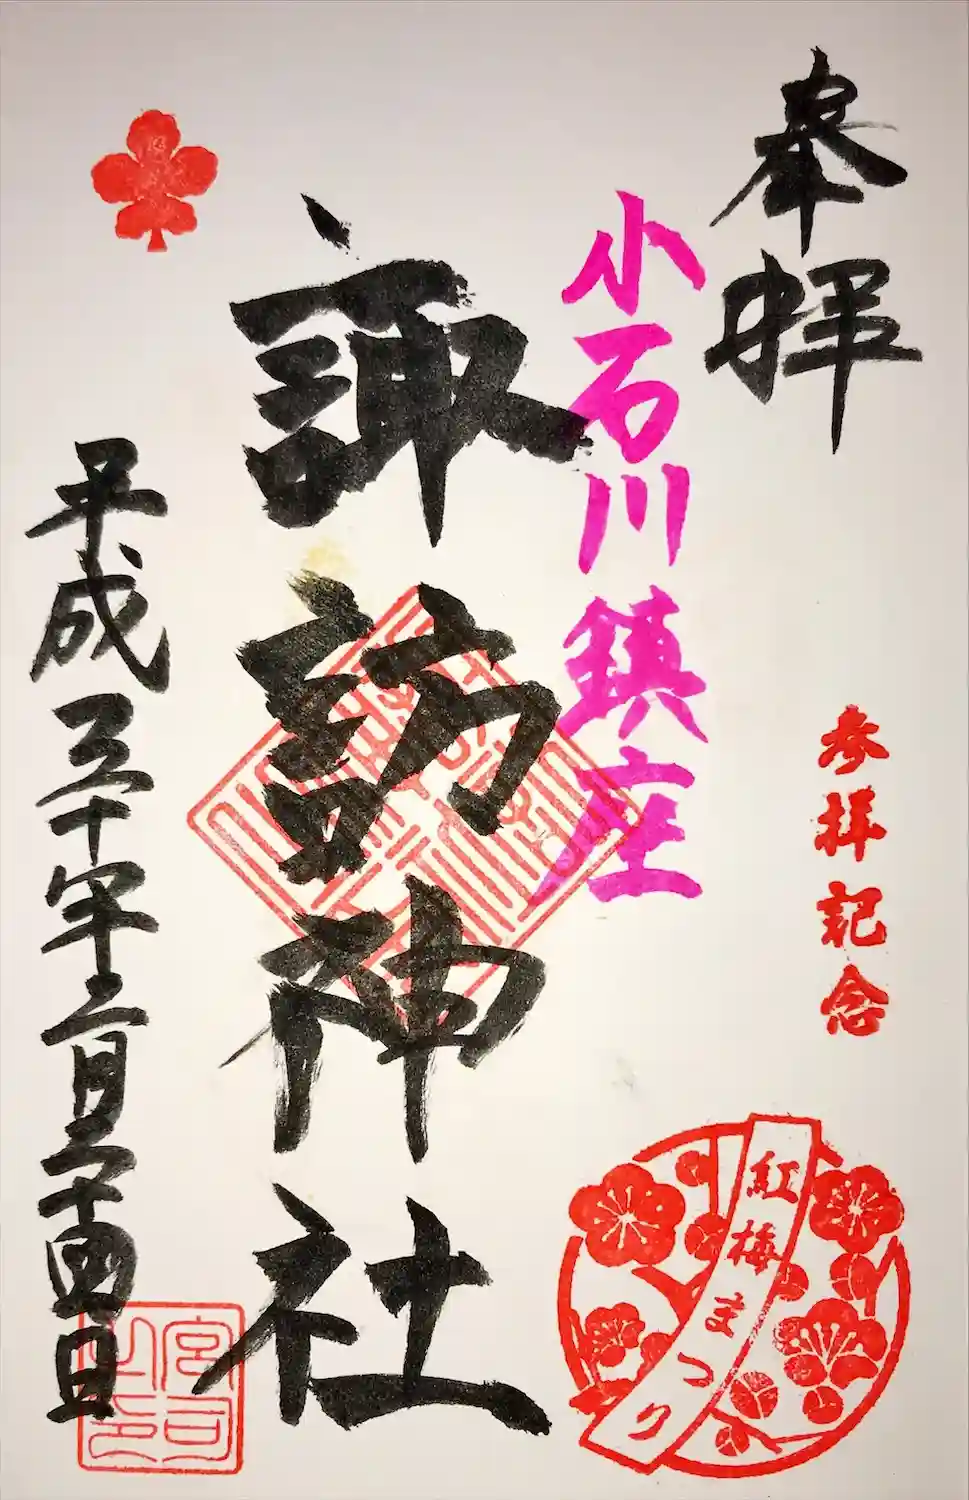 奉拝
参拝記念
紅梅まつり
小石川鎮座
諏訪神社
平成三十年二月二十四日
宮司之印